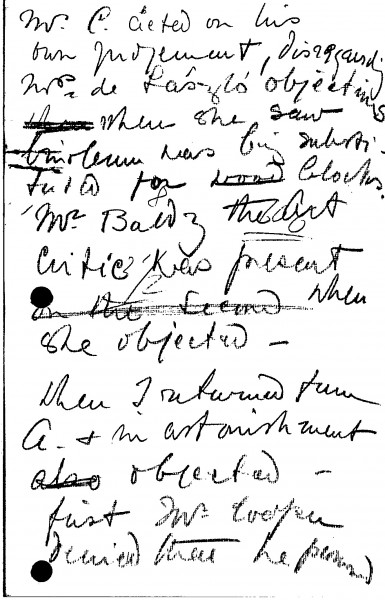 Mr. C. acted on his
own judgement, disregarding
Mrs. de László objecting
when she saw
linoleum was being substi-
tuted for wood blocks.
Mr. Baldry the Art
Critic was present
on the second when
she objected –
When I returned from
A. & in astonishment
also objected –
first Mr. Cooper
denied then he